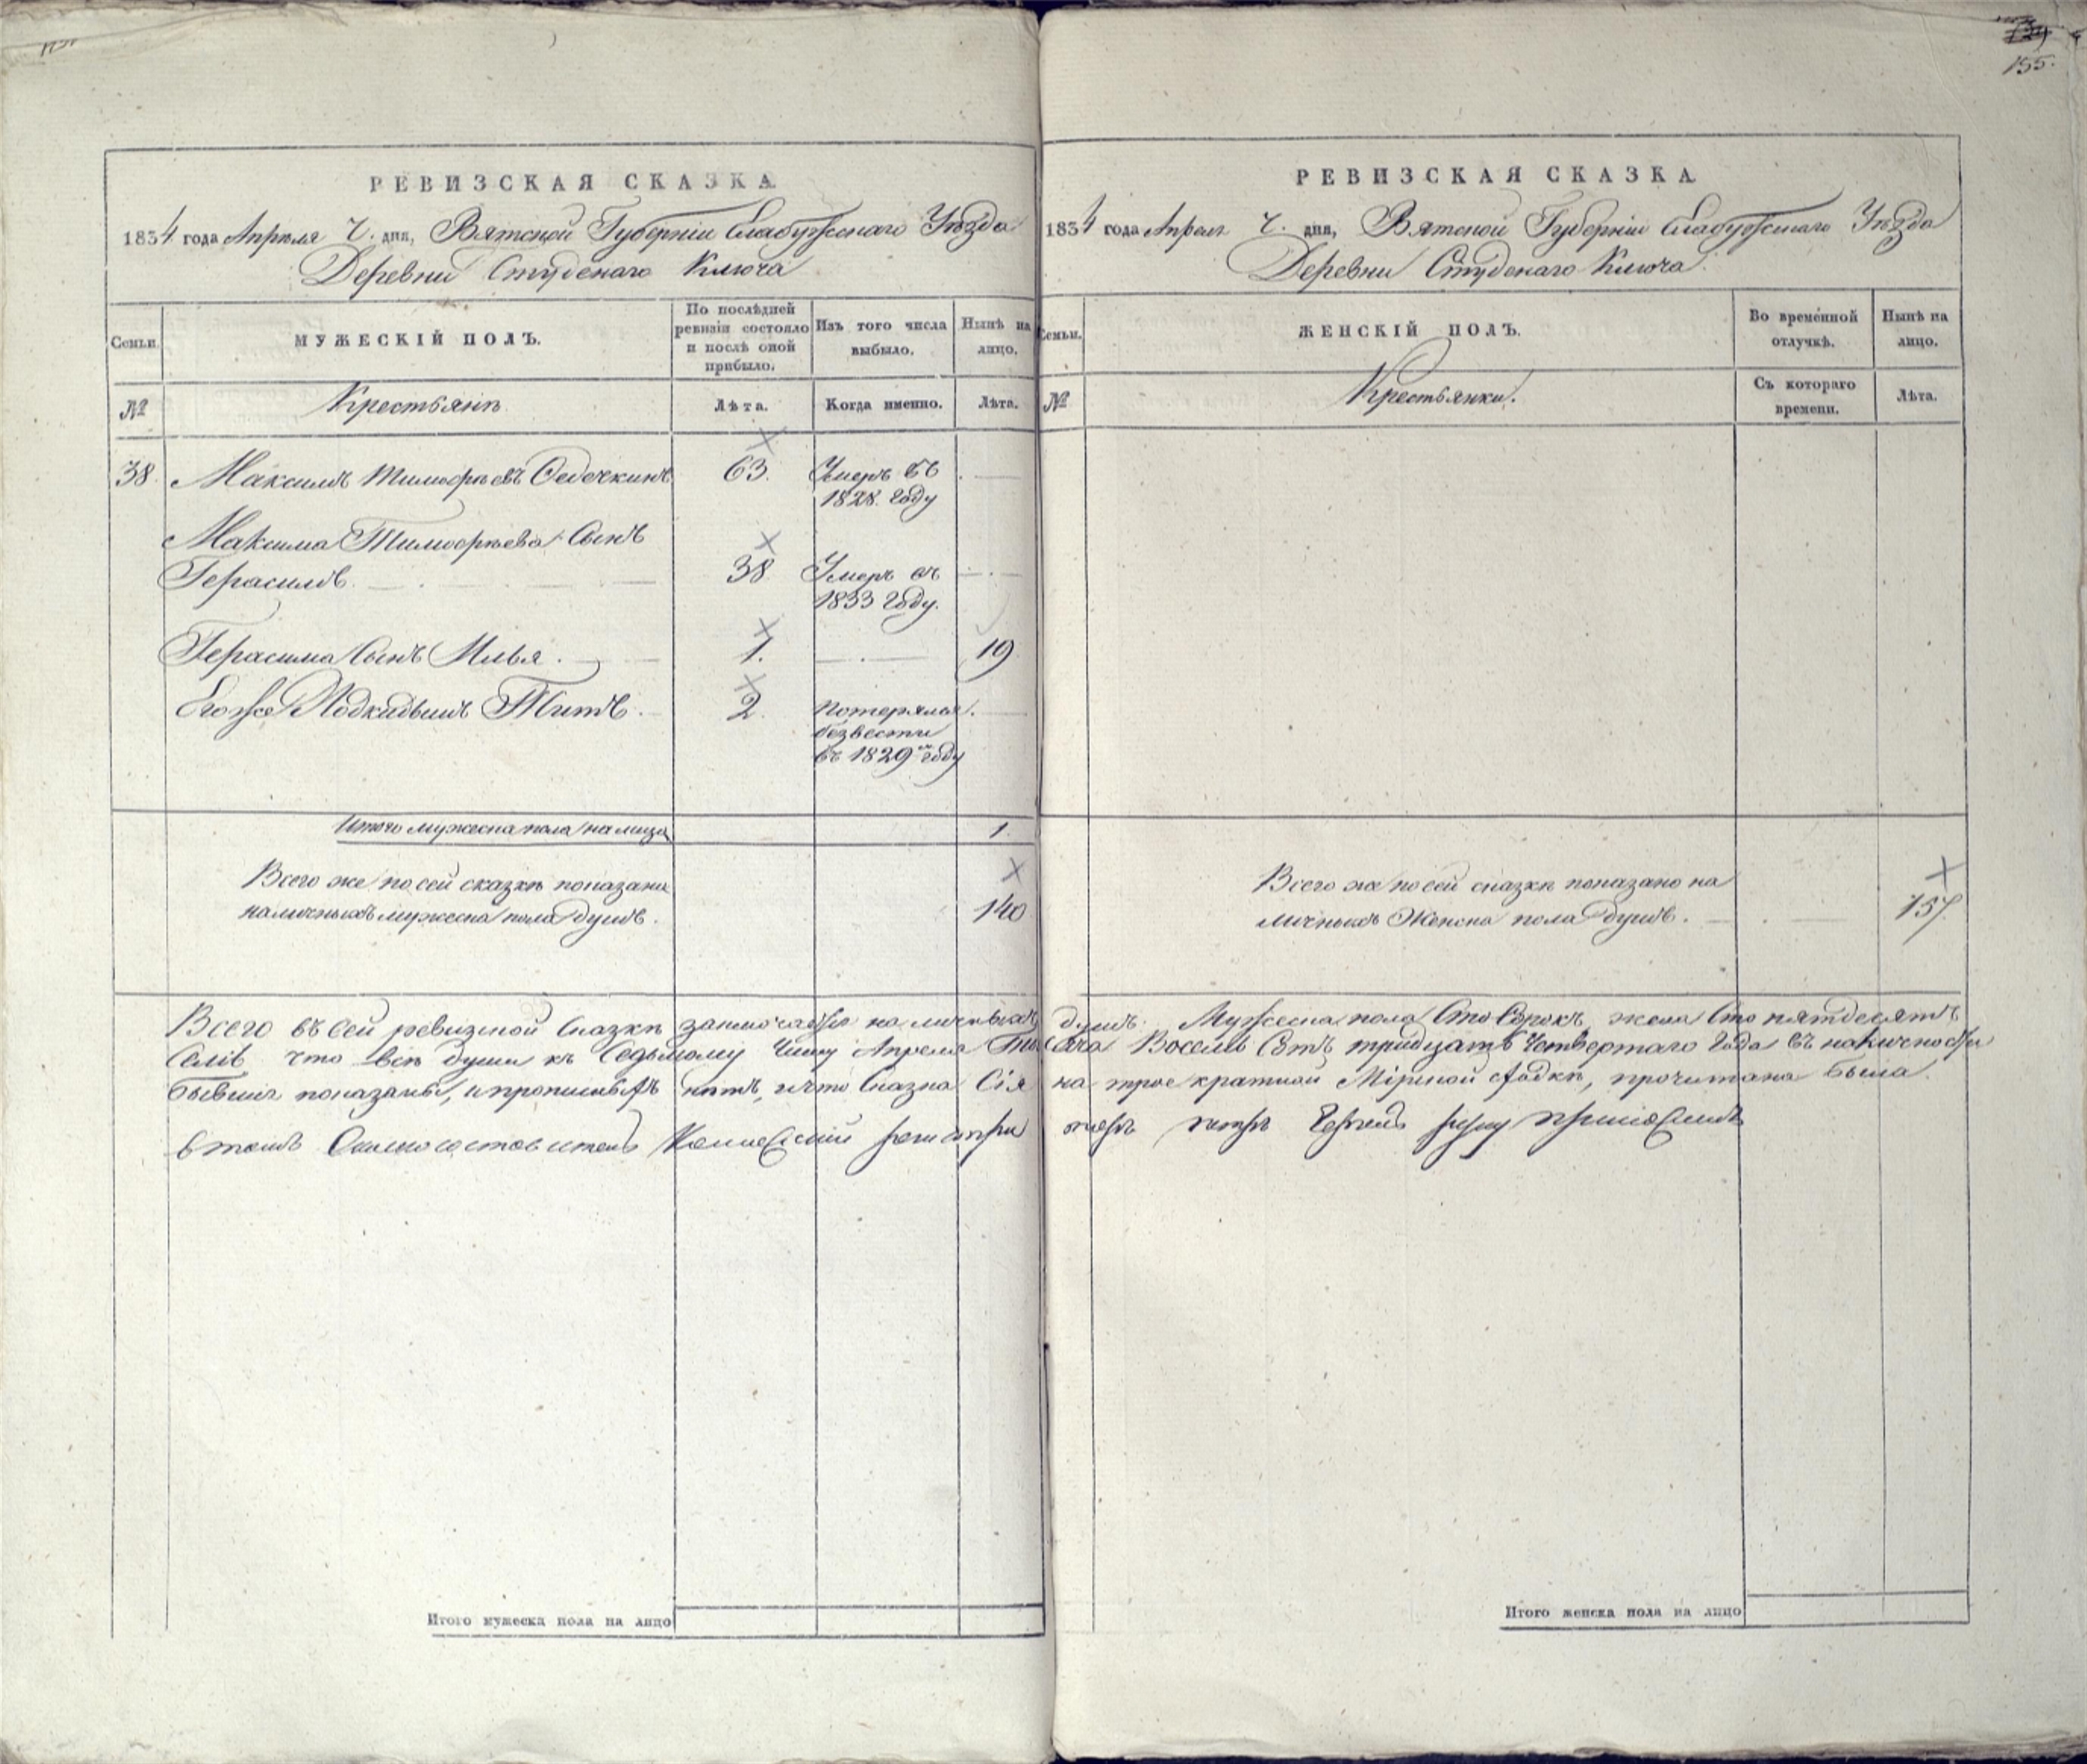 155.
РЕВИЗСКАЯ СКАЗКА
1834 года Апреля 7. дня, Вятской Губерніи Елабужскаго Уѣзда
Деревни Студенаго Ключа
Семьи.
МУЖЕСКІЙ ПОЛЪ.
По послѣдней
ревизіи состояло
и послѣ оной
прибыло.
Изъ того числа
выбыло.
Нынѣ на
лицо.
№
Крестьянѣ
Лѣта.
Когда именно.
Лѣта.
38. Максимъ Тимофѣевъ 63. Умеръ въ
1828. году
Максима Тимофѣева Сынъ
Герасимъ. 38 Умеръ въ
1833 году.
Герасима Сынъ Илья. 1. 19
Егоже Подкидышъ Титъ. 2. потерялся.
безвести
въ 1829 году
Итого мужеска пола на лицо 1.
Всего же по сей сказкѣ показано
наличныхъ мужеска пола душъ. 140
Итого мужеска пола на лицо
РЕВИЗСКАЯ СКАЗКА
1834 года Апреля 7. дня, Вятской Губерніи Елабужскаго Уѣзда
Деревни Студенаго Ключа.
Семьи.
ЖЕНСКІЙ ПОЛЪ.
Во временной
отлучкѣ.
Нынѣ на
лицо.
№
Крестьянки.
Съ котораго
времени.
Лѣта.
Всего же по сей сказкѣ показано на
личныхъ Женска пола душъ. 157.
Всего въ сей ревизкой Сказкѣ заключается наличныхъ душъ. Мужеска пола Сто Сорокъ, жена Сто пятдесятъ
Семь что всѣ души къ Седьмому Числу Апреля Тысяча Восемь Сотъ тридцать Четвертаго Года въ наличности
бывшіе показаны, и прописныхъ нѣтъ, и что Сказка Сія на трое кратной Мірской сходкѣ, прочитана была.
в томъ руку приложилъ
Итого женска пола на лицо